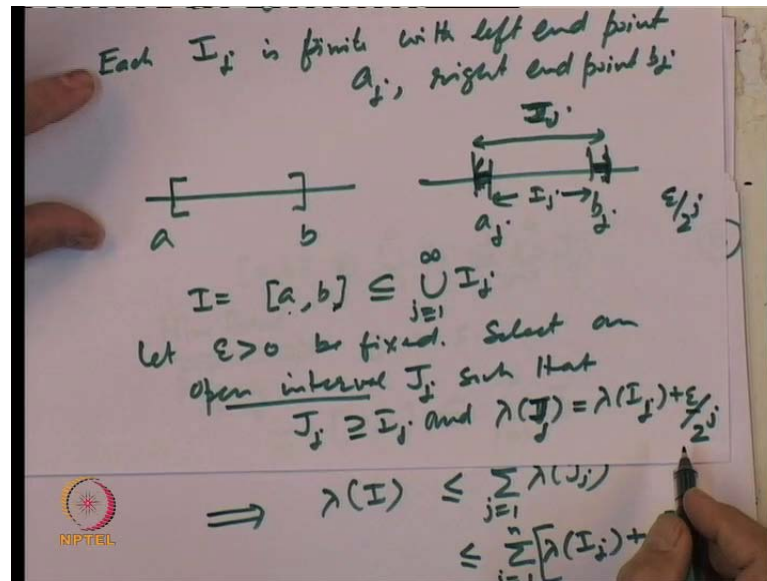 Each I_j is finite with left end point
a_j, right end point b_j
I_j
a b
a_j ← I_j → b_j ε/2^j
I = [a, b] ⊆ ⋃_{j=1}^∞ I_j
Let ε>0 be fixed. Select an
open interval J_j such that
J_j ⊇ I_j and λ(J_j) = λ(I_j) + ε/2^j
⟹ λ(I) ≤ Σ_{j=1} λ(J_j)
≤ Σ_{j=1}^n [λ(I_j) +
NPTEL